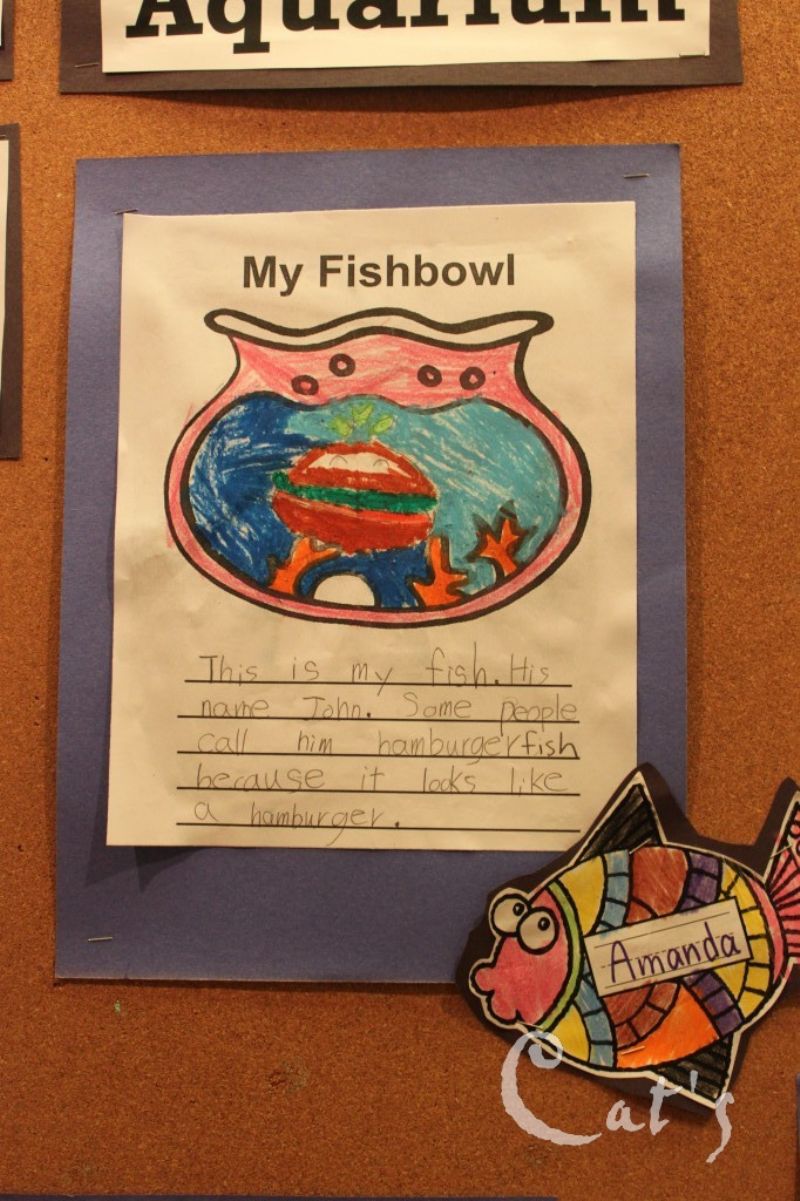 Aquarium
My Fishbowl
This is my fish. His
name John. Some people
call him hamburgerfish
because it looks like
a hamburger.
Amanda
Cat's